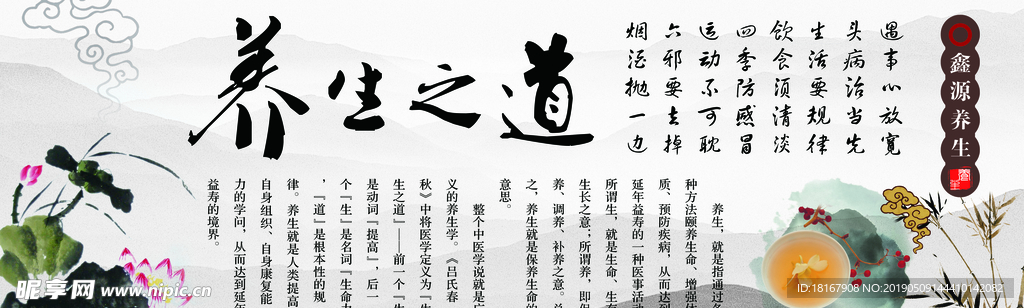 鑫源养生
遇事心放宽
头病治当先
生活要规律
饮食须清淡
四季防感冒
运动不可耽
六邪要去掉
烟酒抛一边
养生之道
养生，就是指通过各
种方法颐养生命、增强体
质、预防疾病，从而达到
延年益寿的一种医事活
所谓生，就是生命、生
生长之意；所谓养，即保
养、调养、补养之意。
之，养生就是保养生命的
意思。
整个中医学说就是
义的养生学。《吕氏春
秋》中将医学定义为『
生之道』——前一个『生
是动词『提高』，后一
个『生』是名词『生命
，『道』是根本性的规
律。养生就是人类提高
自身组织、自身康复能
力的学问，从而达到延年
益寿的境界。
昵享网 www.nipic.cn
ID:18167908 NO:20190509144410142082